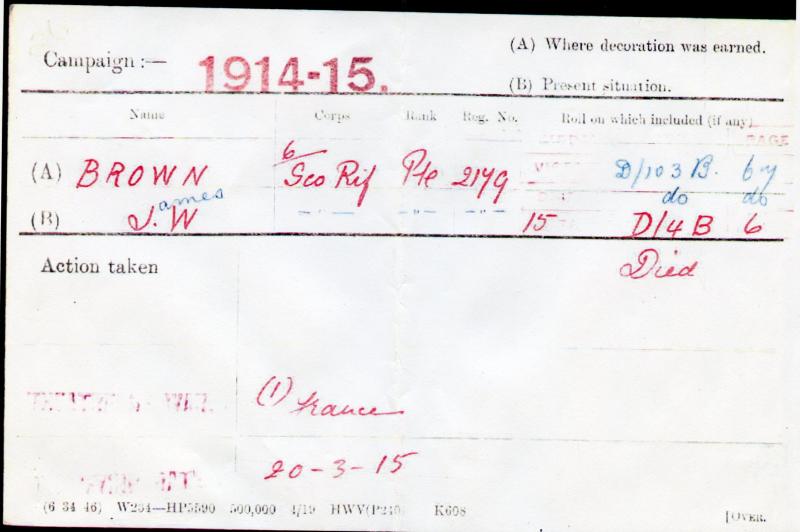 (A) Where decoration was earned.
Campaign :— 1914-15.
(B) Present situation.
Name Corps Rank Reg. No. Roll on which included (if any)
PAGE
(A) BROWN 6 Sco Rif Pte 2179 D/103 B.
ames do do
(B) J. W — " — — " — — " — 15 D/4 B 6
Action taken Died
(1) France
20-3-15
(6 34 46) W234—HP5590 500,000 4/19 HWV(P240 K608 [OVER.